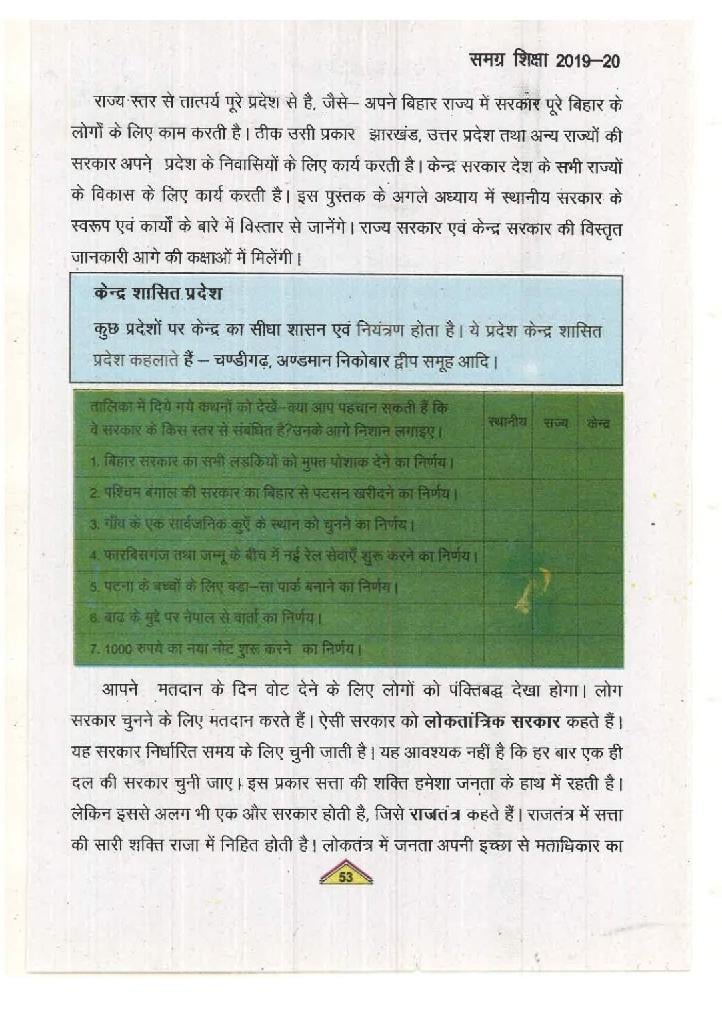 समग्र शिक्षा 2019–20
राज्य स्तर से तात्पर्य पूरे प्रदेश से है, जैसे– अपने बिहार राज्य में सरकार पूरे बिहार के
लोगों के लिए काम करती है। ठीक उसी प्रकार झारखंड, उत्तर प्रदेश तथा अन्य राज्यों की
सरकार अपने प्रदेश के निवासियों के लिए कार्य करती है। केन्द्र सरकार देश के सभी राज्यों
के विकास के लिए कार्य करती है। इस पुस्तक के अगले अध्याय में स्थानीय सरकार के
स्वरूप एवं कार्यों के बारे में विस्तार से जानेंगे। राज्य सरकार एवं केन्द्र सरकार की विस्तृत
जानकारी आगे की कक्षाओं में मिलेंगी।
केन्द्र शासित प्रदेश
कुछ प्रदेशों पर केन्द्र का सीधा शासन एवं नियंत्रण होता है। ये प्रदेश केन्द्र शासित
प्रदेश कहलाते हैं – चण्डीगढ़, अण्डमान निकोबार द्वीप समूह आदि।
तालिका में दिये गये कथनों को देखें–क्या आप पहचान सकती हैं कि
वे सरकार के किस स्तर से संबंधित है?उनके आगे निशान लगाइए।
स्थानीय राज्य केन्द्र
1. बिहार सरकार का सभी लड़कियों को मुफ्त पोशाक देने का निर्णय।
2. पश्चिम बंगाल की सरकार का बिहार से पटसन खरीदने का निर्णय।
3. गाँव के एक सार्वजनिक कुएँ के स्थान को चुनने का निर्णय।
4. फारबिसगंज तथा जम्मू के बीच में नई रेल सेवाएँ शुरू करने का निर्णय।
5. पटना के बच्चों के लिए बडा–सा पार्क बनाने का निर्णय।
6. बाढ के मुद्दे पर नेपाल से वार्ता का निर्णय।
7. 1000 रुपये का नया नोट शुरू करने का निर्णय।
आपने मतदान के दिन वोट देने के लिए लोगों को पंक्तिबद्ध देखा होगा। लोग
सरकार चुनने के लिए मतदान करते हैं। ऐसी सरकार को लोकतांत्रिक सरकार कहते हैं।
यह सरकार निर्धारित समय के लिए चुनी जाती है। यह आवश्यक नहीं है कि हर बार एक ही
दल की सरकार चुनी जाए। इस प्रकार सत्ता की शक्ति हमेशा जनता के हाथ में रहती है।
लेकिन इससे अलग भी एक और सरकार होती है, जिसे राजतंत्र कहते हैं। राजतंत्र में सत्ता
की सारी शक्ति राजा में निहित होती है। लोकतंत्र में जनता अपनी इच्छा से मताधिकार का
53